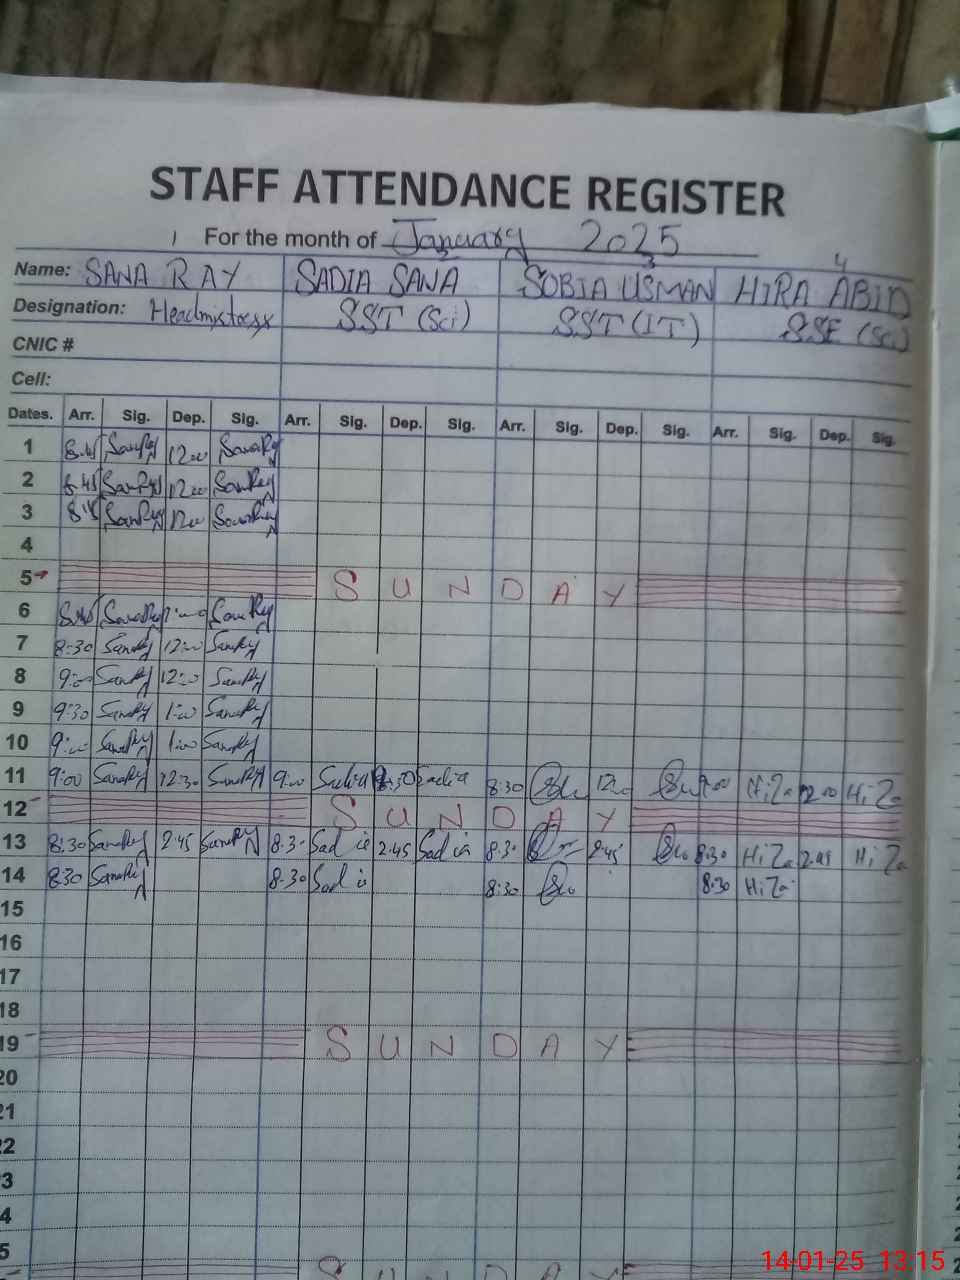 STAFF ATTENDANCE REGISTER
1 For the month of January 2025
2 3 4
Name: SANA RAY SADIA SANA SOBIA USMAN HIRA ABID
Designation: Headmistress SST (Sci) SST (IT) SSE (Sci)
CNIC #
Cell:
Dates. Arr. Sig. Dep. Sig. Arr. Sig. Dep. Sig. Arr. Sig. Dep. Sig. Arr. Sig. Dep. Sig.
1 8:45 SanaRay 12:00 SanaRay
2 8:45 SanaRay 12:00 SanaRay
3 SanaRay 12:00 SanaRay
4
5 SUNDAY
6 SanaRay SanaRay
7 8:30 SanaRay 12:00 SanaRay
8 9:00 SanaRay 12:00 SanaRay
9 9:30 SanaRay 1:00 SanaRay
10 9:00 SanaRay 1:00 SanaRay
11 9:00 SanaRay 12:30 SanaRay 9:00 Sadia Sadia 8:30 12:00 HiZa 12:00 HiZa
12 SUNDAY
13 8:30 SanaRay 2:45 SanaRay 8:30 Sadia 2:45 Sadia 8:30 2:45 8:30 HiZa 2:45 HiZa
14 8:30 SanaRay 8:30 Sadia 8:30 8:30 HiZa
15
16
17
18
19 SUNDAY
20
21
22
3
4
5 SUNDAY
14-01-25 13:15